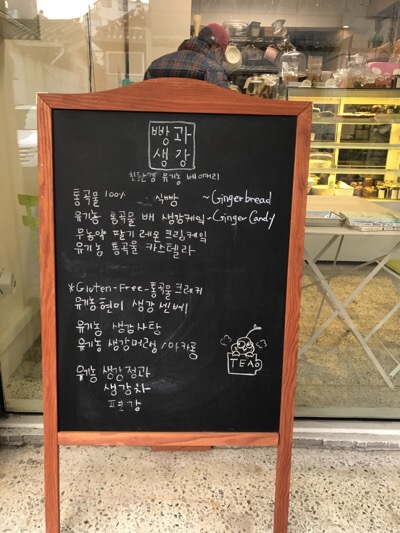 빵과
생강
친환경 유기농 베이커리
통곡물 100% 식빵 ~Gingerbread
유기농 통곡물 배 생강케잌 ~Ginger Candy
무농약 딸기 레몬 크림케잌
유기농 통곡물 카스텔라
*Gluten-Free-통곡물 크래커
유기농 현미 생강 센베
유기농 생강사탕
유기농 생강머랭/마카롱
유기농 생강정과
생강차
편강
TEA